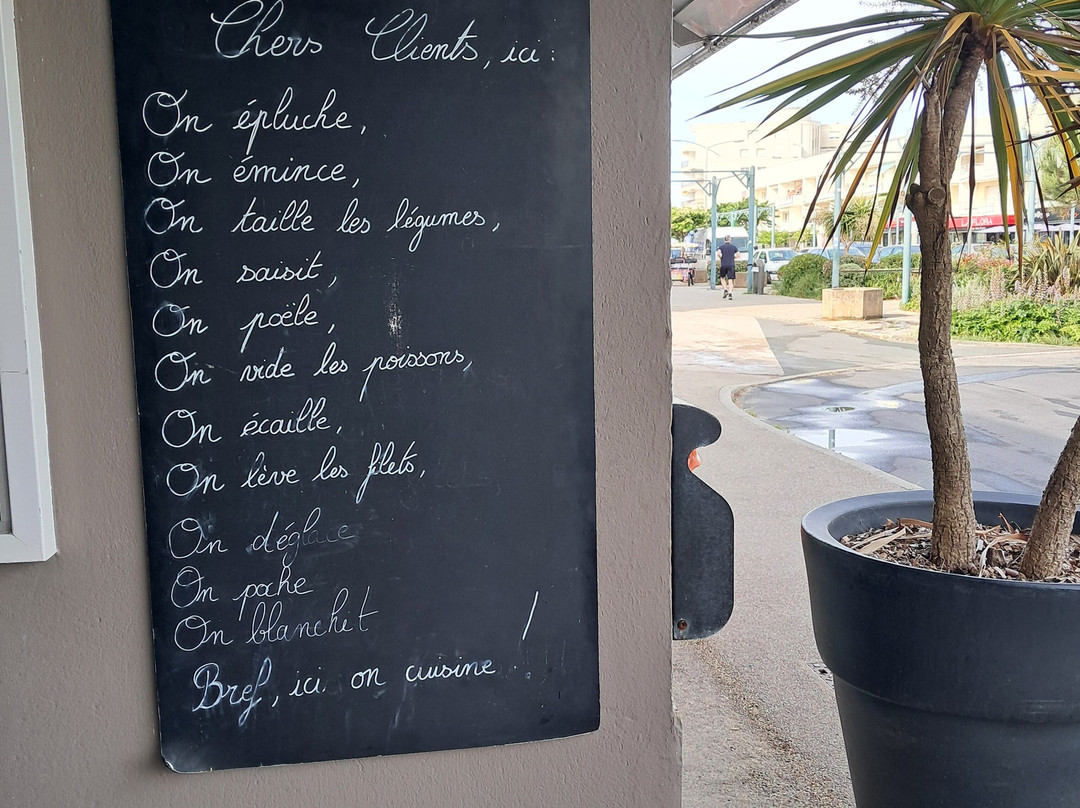 Chers Clients, ici :
On épluche,
On émince,
On taille les légumes,
On saisit,
On poêle,
On vide les poissons,
On écaille,
On lève les filets,
On déglace
On poche
On blanchit
Bref, ici on cuisine !